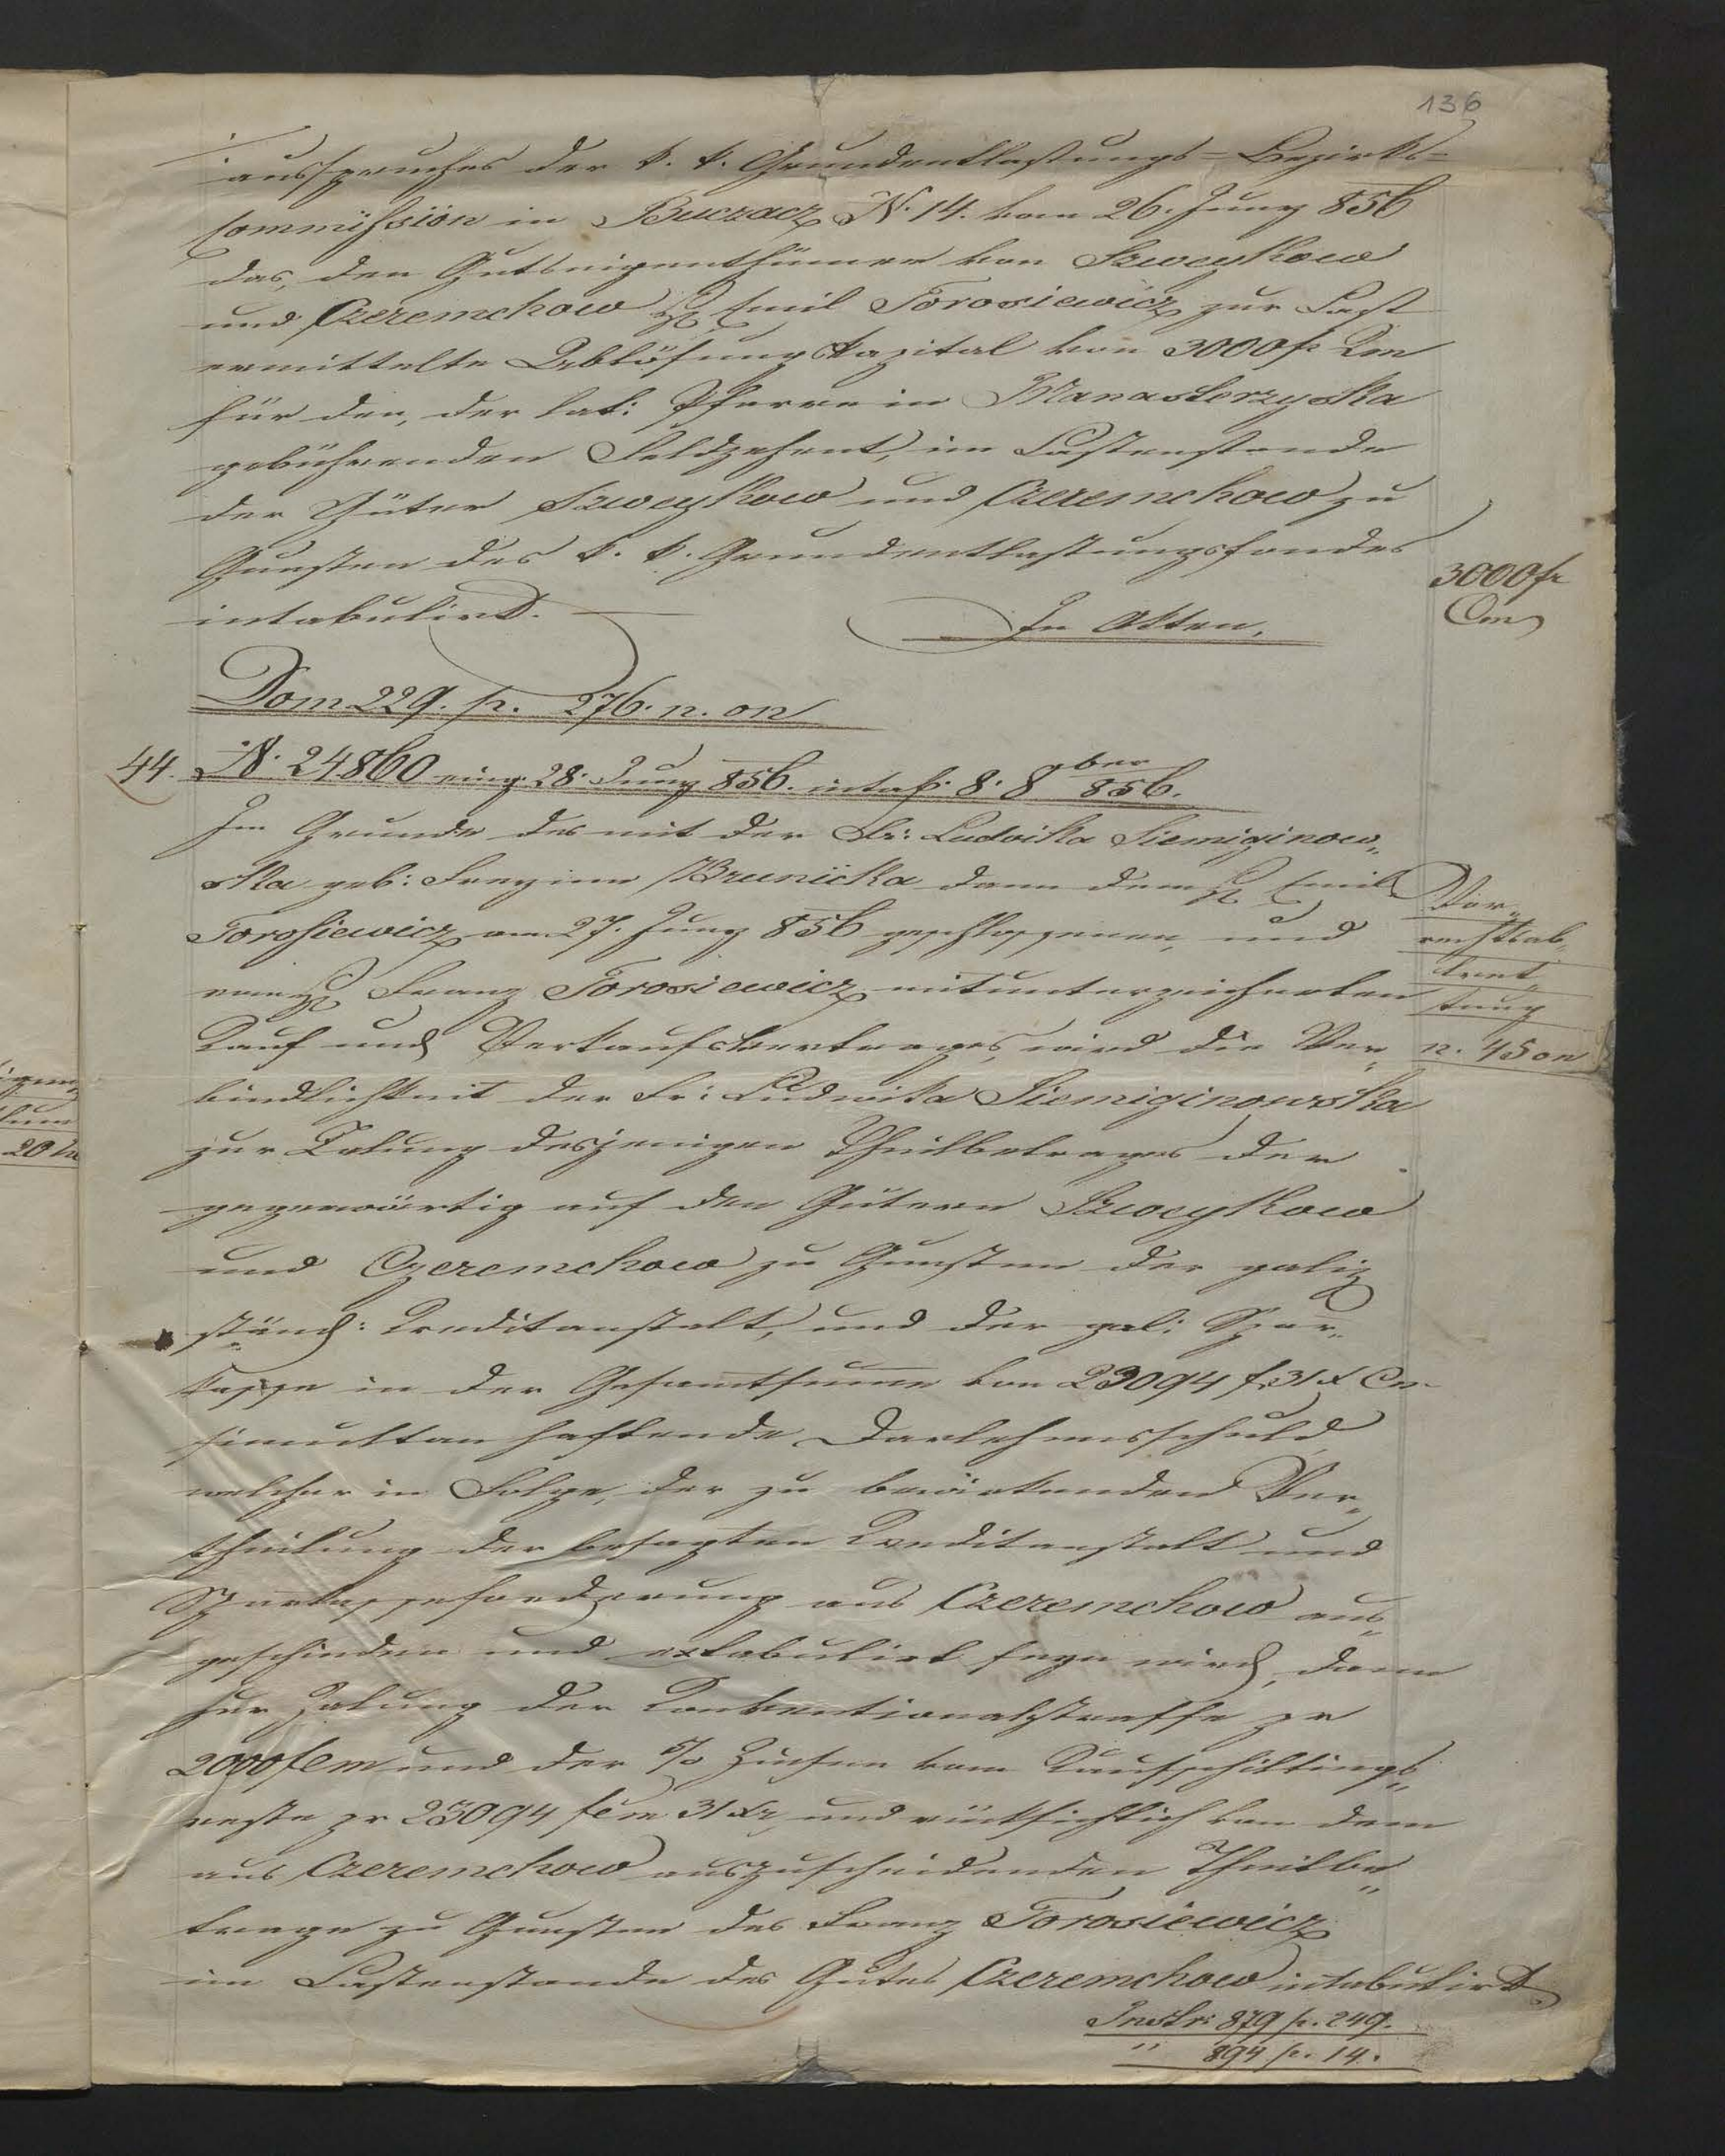 136
ausspruches der k. k. Grundentlastungs=Bezirks=
Commission in Buczacz N. 14. vom 26. Juny 856
das, den Gutseigenthümer von Szweykow
und Czeremchow H. Emil Torosiewicz zur Last
ermittelte Ablösungskapital von 3000 fr Cm
für den, der lat: Pfarre in Manasterzyska
gebührenden Feldzehent, im Lastenstande
der Güter Szweykow und Czeremchow zu
Gunsten des k. k. Grundentlastungsfondes
intabulirt.
In Akten.
3000 fr
Cm
Dom 229. p. 276. n. on
44. N. 24860 eing. 28. Juny 856. 8. 8ber 856.
Im Grunde des mit der Fr: Ludwika Siemiginow„
ska geb: Freyinn Brunicka dann dem H. Emil
Torosiewicz am 27. Juny 856 geschlossenen, und
vom H. Franz Torosiewicz mitunterzeichneten
Kauf und Verkaufsvertrages, wird die Ver„
bindlichkeit der Fr: Ludwika Siemiginowska
zur Zalung desjenigen Theilbetrages der
gegenwärtig auf den Gütern Szweykow
und Czeremchow zu Gunsten der galiz
ständ: Kreditanstalt, und der gal: Spar„
kasse in der Gesammtsumme von 23094 f 31 x Cm
simultan haftende Darlehensschuld
welcher in Folge, der zu bewirkenden Ver„
theilung der besagten Kreditanstalt und
Sparkasseforderung aus Czeremchow aus„
geschieden und extabulirt seyn wird, dann
zur Zalung der Konventionalstraffe pr
2000 f Cm und der 5% Zinsen vom Kaufschillings„
reste pr 23094 f Cm 31 xr, und rücksichtlich von dem
aus Czeremchow auszuscheidenden Theilbe„
trage zu Gunsten des Franz Torosiewicz
im Lastenstande des Gutes Czeremchow intabulirt
Instr: 879 p. 249.
" 894 p. 14.
Vor„
rechtsab„
tret„
tung
n. 45 on
20 on